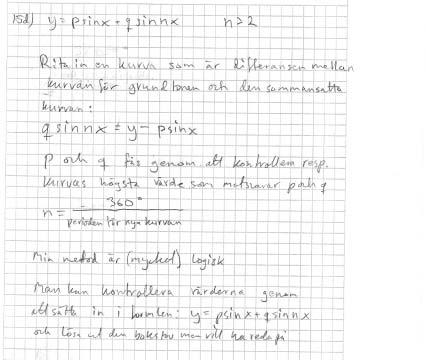 15d) y = psinx + qsinnx n ≥ 2
Rita in en kurva som är differansen mellan
kurvan för grundtonen och den sammansatta
kurvan:
qsinnx = y - psinx
p och q fås genom att kontrollera resp.
kurvas högsta värde som motsvarar p och q
n = 360°
perioden för nya kurvan
Min metod är (mycket) logisk
Man kan kontrollera värderna genom
att sätta in i formlen: y = psinx + qsinnx
och lösa ut den bokstav man vill ha reda på